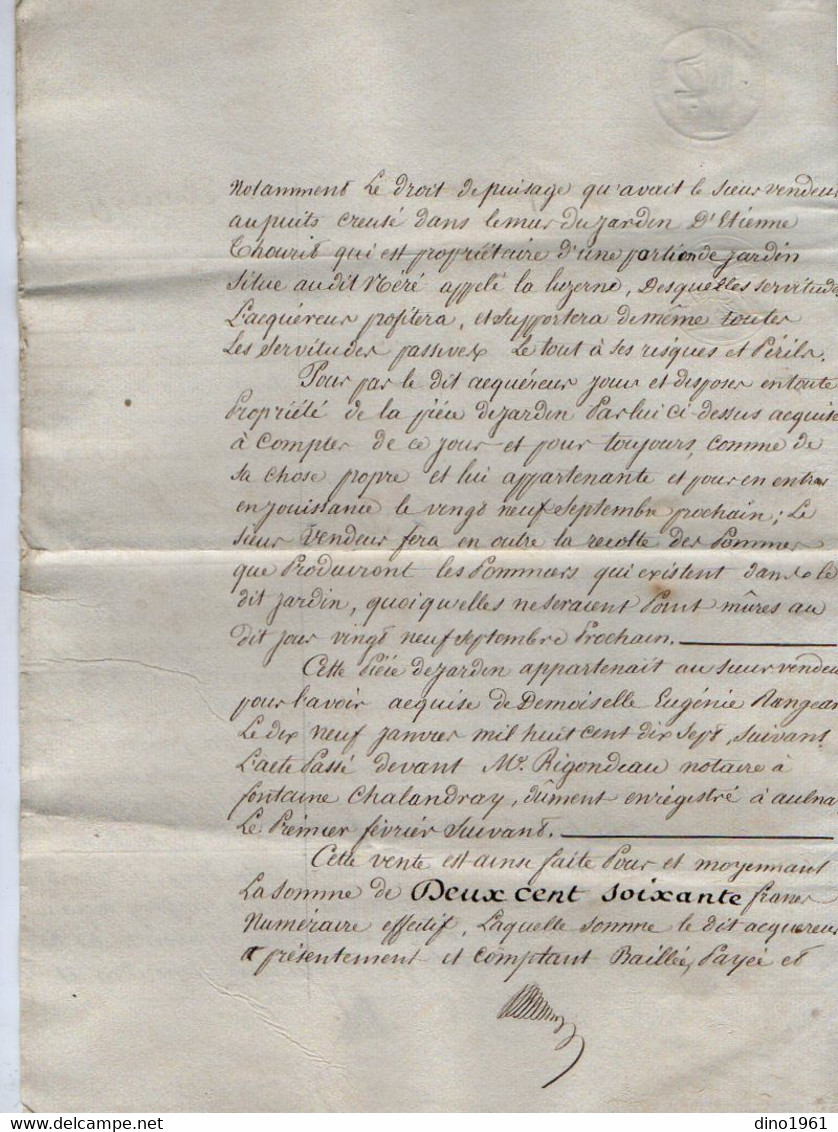 Notamment Le droit de puisage qu'avait le sieur vendeur
au puits creusé dans le mur du jardin D'Etienne
Thourit qui est propriétaire d'une partion de jardin
Situe au dit Néré appelé la luzerne, Desquelles servitudes
L'acquéreur profitera, et supportera de même toutes
Les Servitudes passives. Le tout à ses risques et Périls.
Pour par le dit acquéreur jouir et disposer en toute
Propriété de la piéce de jardin Par lui ci-dessus acquise
à Compter de ce jour et pour toujours, comme de
sa chose propre et lui appartenante et pour en entrer
en jouissance le vingt neuf Septembre prochain; Le
sieur Vendeur fera en outre la recolte des Pommes
que Produiront les Pommiers qui existent dans le
dit jardin, quoiqu'elles ne seraient Point mûres au
dit jour vingt neuf septembre Prochain.
Cette Piéce de jardin appartenait au sieur vendeur
pour l'avoir acquise de Demoiselle Eugénie Rangear
Le dix neuf janvier mil huit cent dix sept, suivant
L'acte Passé devant Me. Rigondeau notaire à
fontaine Chalandray, dûment enrégistré à aulna
Le Prémier février Suivant.
Cette vente est ainsi faite Pour et moyennant
La somme de Deux cent soixante francs
Numéraire effectif, Laquelle somme le dit acquereur
a présentement et comptant Baillée, Payée et
dino1961